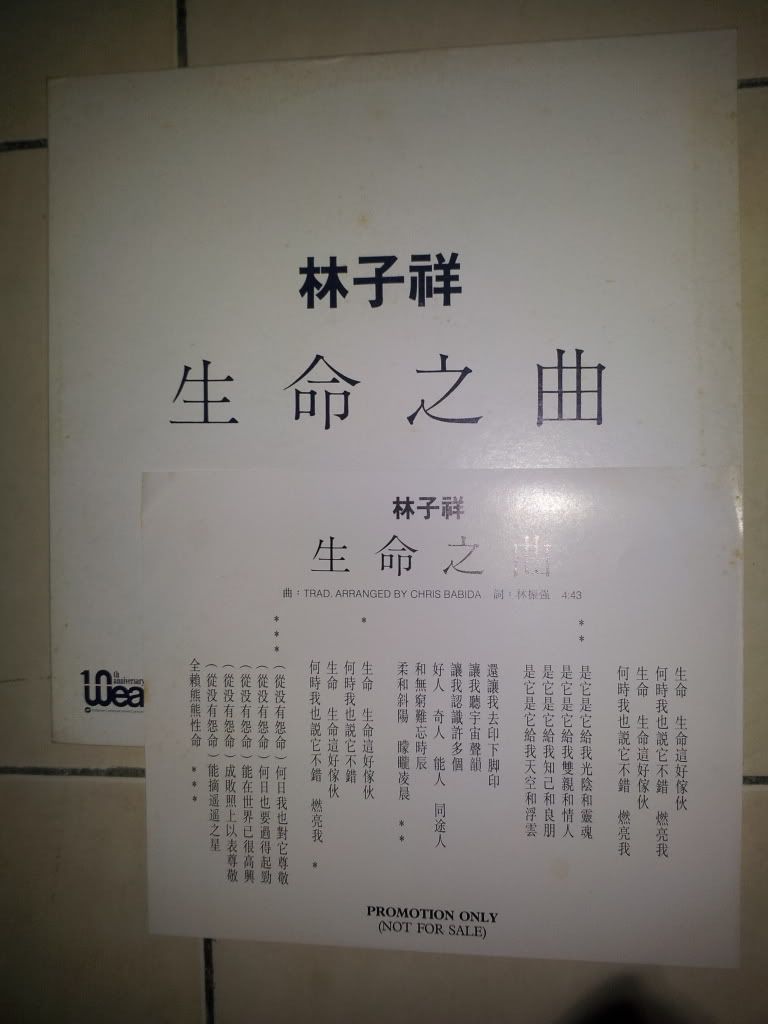 林子祥
生命之曲
10th anniversary
wea
林子祥
生命之曲
曲：TRAD. ARRANGED BY CHRIS BABIDA 詞：林振強 4:43
生命 生命這好傢伙
何時我也説它不錯 燃亮我
生命 生命這好傢伙
何時我也説它不錯 燃亮我
** 是它是它給我光陰和靈魂
是它是它給我雙親和情人
是它是它給我知己和良朋
是它是它給我天空和浮雲
還讓我去印下脚印
讓我聽宇宙聲韻
讓我認識許多個
好人 奇人 能人 同途人
和無窮難忘時辰
柔和斜陽 矇矓凌晨 **
* 生命 生命這好傢伙
何時我也説它不錯
生命 生命這好傢伙
何時我也説它不錯 燃亮我 *
*** （從没有怨命）何日我也對它尊敬
（從没有怨命）何日也要過得起勁
（從没有怨命）能在世界已很高興
（從没有怨命）成敗照上以表尊敬
（從没有怨命）能摘遥遥之星
全賴熊熊性命 ***
PROMOTION ONLY
(NOT FOR SALE)